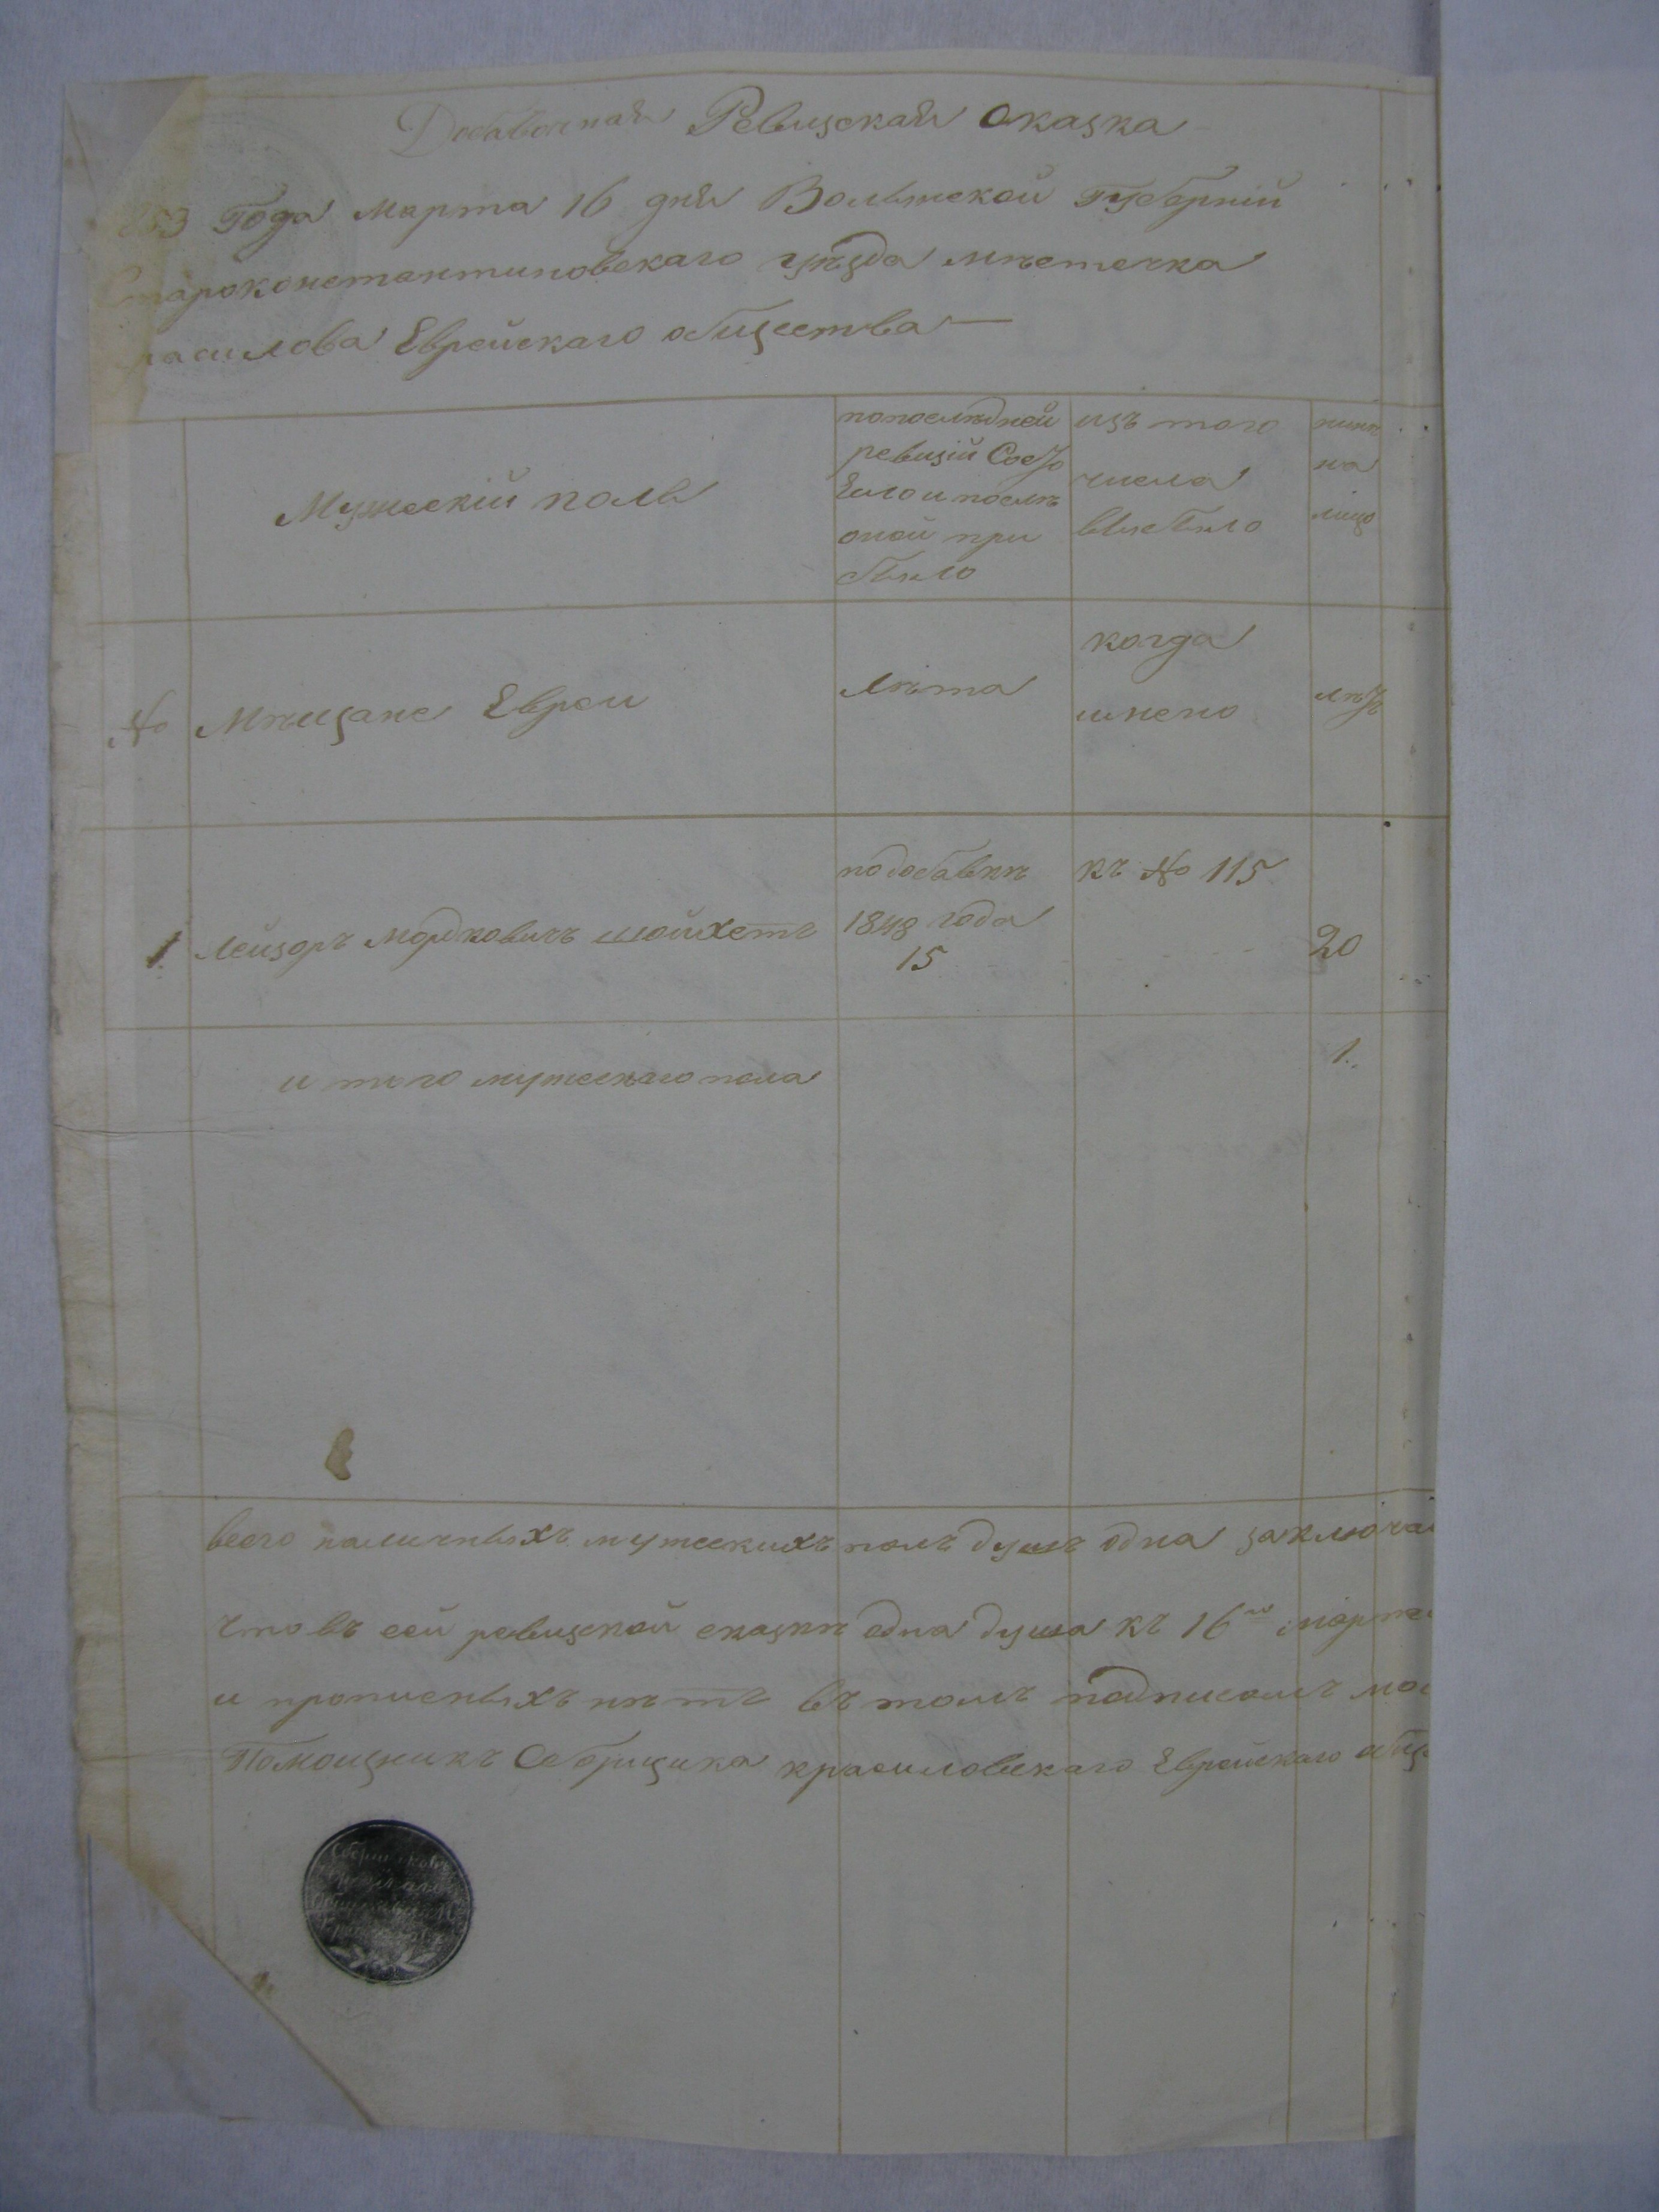 Добавочная Ревизская Сказка
853 Года Марта 16 дня Волынской Губерніи
Староконстантиновскаго уѣзда мѣстечка
расилова Еврейскаго общества —
Мужескій полъ
по послѣдней
ревизіи Состо
яло и послѣ
оной при
было
изъ того
числа
выбыло
нынѣ
на
лицо
№
Мѣщане Евреи
Лѣта
когда
имѣно
лѣтъ
1
Лейзоръ Мордковичъ Шойхетъ
по добавкѣ
1848 года
15
къ № 115
20
и того мужескаго пола
1.
всего наличныхъ мужескихъ полъ душъ одна заключа
что въ сей ревизской сказкѣ одна душа къ 16го марта
и прописныхъ нѣтъ въ томъ подписомъ мо
Помощникъ Сборщика красиловскаго Еврейскаго общ